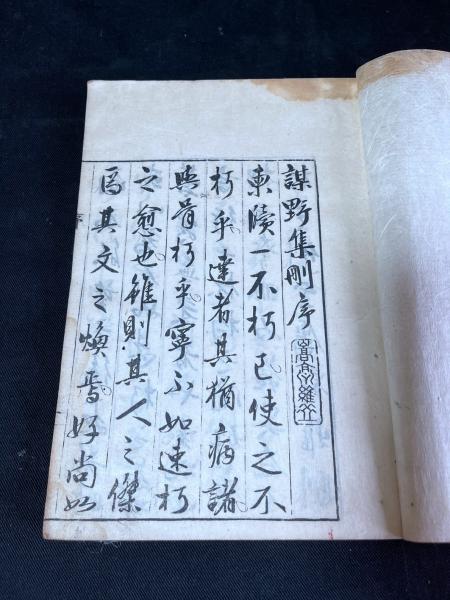 謀野集刪序
柬牘一不朽已使之不
朽乎達者其猶病諸
與骨朽乎寧不如速朽
之愈也雖則其人之傑
焉其文之煥焉好尚如
序